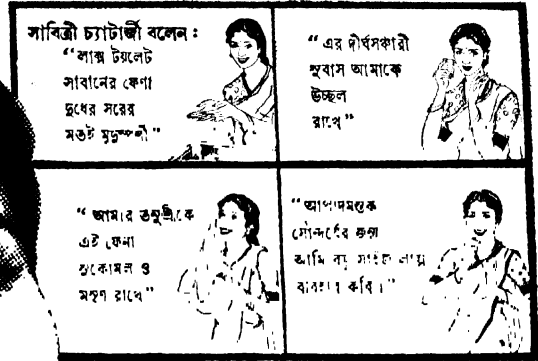 সাবিত্রী চ্যাটার্জী বলেন :
“লাক্স টয়লেট
সাবানের ফেণা
দুধের সরের
মতই মৃদুস্পর্শী”
“এর দীর্ঘসঞ্চারী
সুবাস আমাকে
উচ্ছল
রাখে”
“আমার তনুশ্রীকে
এই ফেনা
সুকোমল ও
মসৃণ রাখে”
“আপাদমস্তক
সৌন্দর্যের জন্য
আমি বড় সাইজ লাক্স
ব্যবহার করি।”